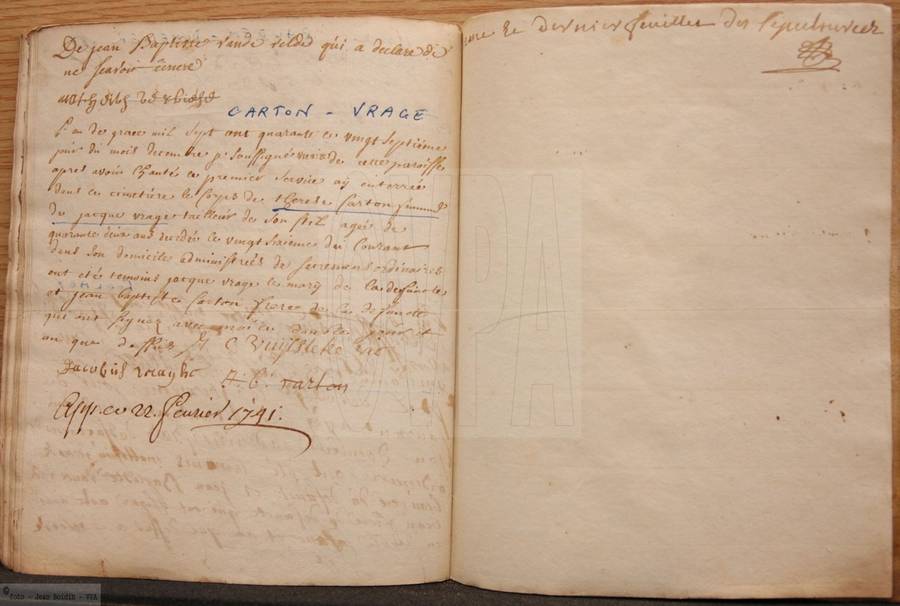 De jean Baptiste vande velde qui a declare de
ne scavoir ecrire
CARTON - VRAGE
L'an de grace mil sept cent quarante le vingt septieme
jour du mois decembre je soussigné vice de cette paroisse
apres avoir chanté le premier service aij enterrée
dans ce cimetiére le corps de therese Carton femme
de jacque vrage tailleur de son stil ageé de
quarante deux ans decedée le vingt sixieme du Courant
dans son domicile administreés de sacremens ordinaires
ont eté temoins jacque vrage le mary de la defuncte
et jean baptiste Carton frere de la defuncte
qui ont signez avec moi le jour et
an que dessus
Jacobus
J. B. Carton
App. ce 22 fevrier 1741.
et dernier feuillet des sepulturez
VPA
© foto - Jean Boidin - VPA